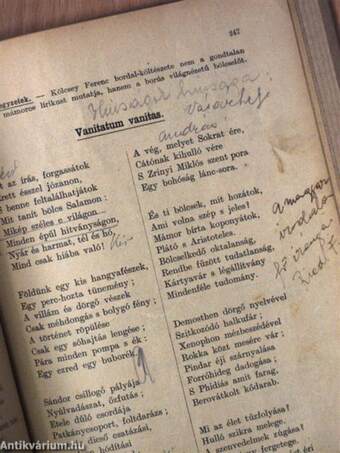 247
egyzetek. — Kölcsey Ferenc bordal-költészete nem a gondtalan
mámoros lirikust mutatja, hanem a borús világnézetű bölcselőt.
Hiúságok hiúsága
Vanitatum vanitas.
t az írás, forgassátok
rett ésszel józanon,
benne feltalálhatjátok
Mit tanít bölcs Salamon:
Mikép széles e világon
Minden épül hitványságon,
Nyár és harmat, tél és hó
Mind csak hiába való!
Földünk egy kis hangyafészek,
Egy perc-hozta tünemény;
A villám és dörgő vészek
Csak méhdongás s bolygó fény;
A történet röpülése
Csak egy sóhajtás lengése;
Pára minden pompa s ék:
Egy ezred egy buborék.
Sándor csillogó pályája
Nyúlvadászat, őzfutás;
Etele dúló csordája
Patkánycsoport, foltdarázs;
dicső csatázási,
A vég, melyet Sokrat ére,
Cátónak kihulló vére
S Zrinyi Miklós szent pora
Egy bohóság lánc-sora.
És ti bölcsek, mit hozátok,
Ami volna szép s jeles?
Mámor bírta koponyátok,
Plátó s Aristoteles.
Bölcselkedő oktalanság,
Rendbe fűzött tudatlanság,
Kártyavár s légállítvány
Mindenféle tudomány.
Demosthen dörgő nyelvével
Szitkozódó halkufár;
Xenophon mézbeszédével
Rokka közt mesére vár;
Pindar éji szárnyalása
Forróhideg dadogása;
S Phidiás amit farag,
Berovátkolt kődarab.
Mi az élet tűzfolyása?
Hulló szikra melege.
A szenvedelmek zúgása?
Antikvárium.hu